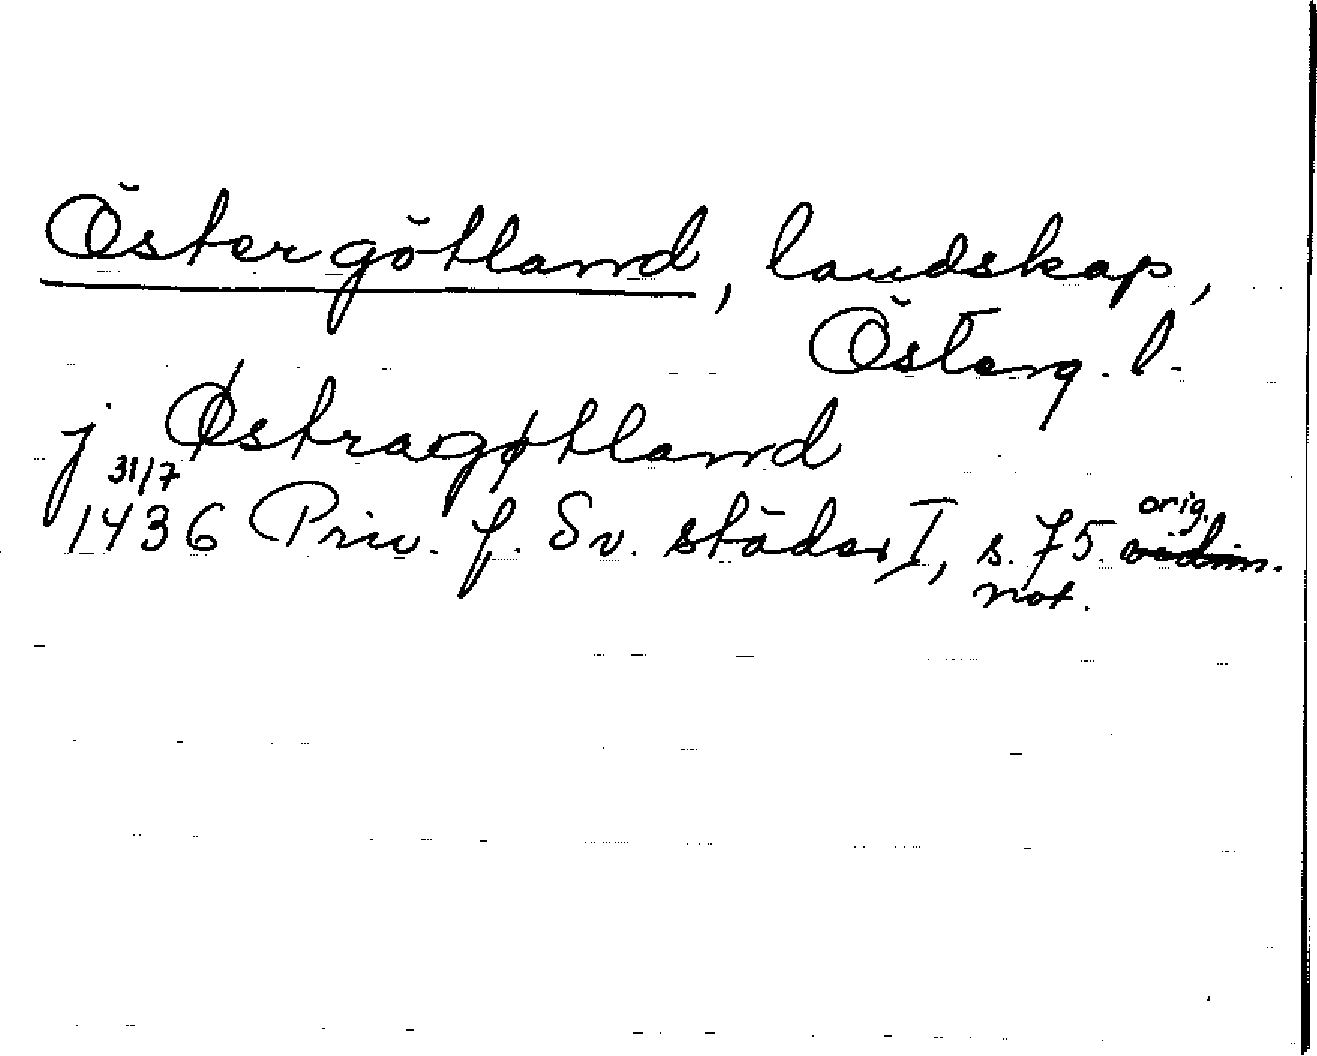 Östergötland, landskap,
Österg. l.
j Østragøtland
31/7
1436 Priv. f. Sv. städer I, s. 75. orig. vidim.
not.